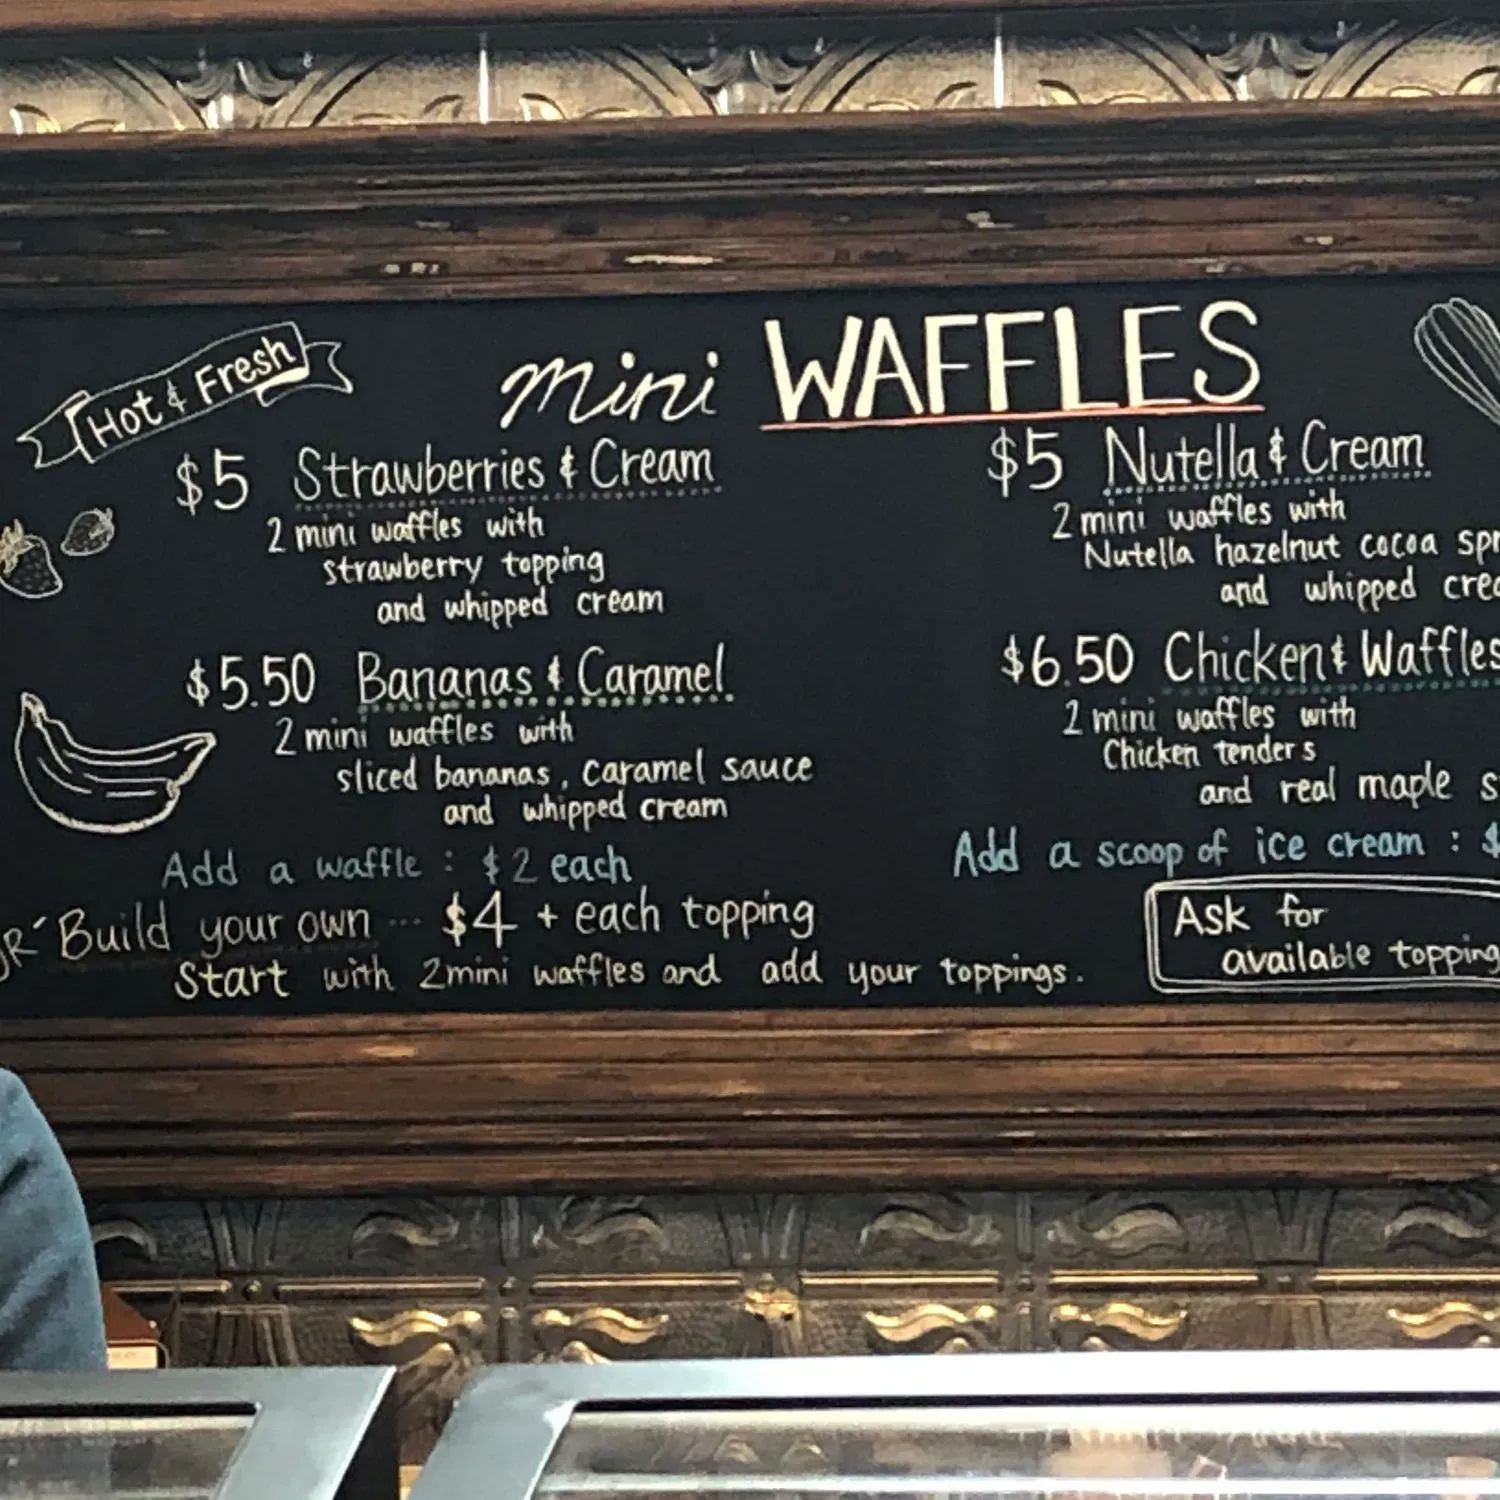 Hot & Fresh
mini WAFFLES
$5 Strawberries & Cream
2 mini waffles with
strawberry topping
and whipped cream
$5.50 Bananas & Caramel
2 mini waffles with
sliced bananas, caramel sauce
and whipped cream
Add a waffle : $2 each
$5 Nutella & Cream
2 mini waffles with
Nutella hazelnut cocoa
and whipped
$6.50 Chicken & Waffles
2 mini waffles with
Chicken tenders
and real maple
Add a scoop of ice cream : $
Build your own ... $4 + each topping
Start with 2 mini waffles and add your toppings.
Ask for
available topping